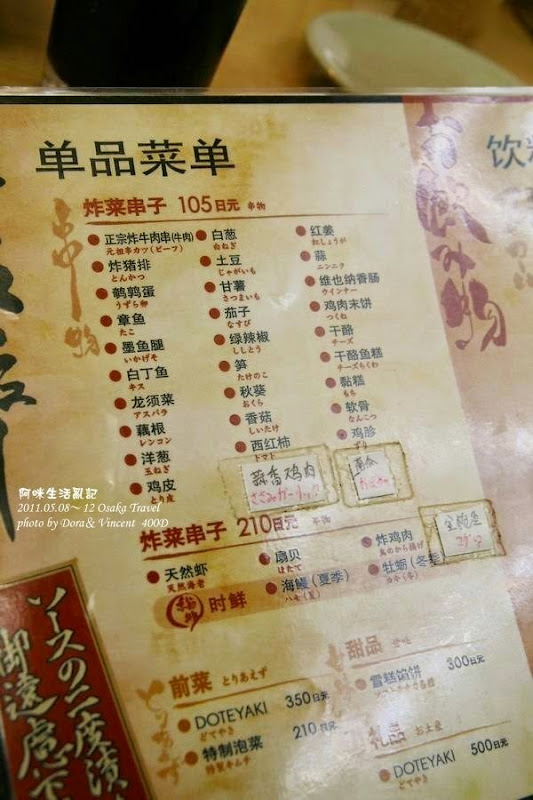 单品菜单
饮料
串物
炸菜串子 105日元 串物
正宗炸牛肉串(牛肉)
元祖串カツ(ビーフ)
炸猪排
とんかつ
鹌鹑蛋
うずら卵
章鱼
たこ
墨鱼腿
いかげそ
白丁鱼
キス
龙须菜
アスパラ
藕根
レンコン
洋葱
玉ねぎ
鸡皮
とり皮
白葱
白ねぎ
土豆
じゃがいも
甘薯
さつまいも
茄子
なすび
绿辣椒
ししとう
笋
たけのこ
秋葵
おくら
香菇
しいたけ
西红柿
トマト
红姜
紅しょうが
蒜
ニンニク
维也纳香肠
ウインナー
鸡肉末饼
つくね
干酪
チーズ
干酪鱼糕
チーズちくわ
黏糕
もち
软骨
なんこつ
鸡胗
ずり
蒜香鸡肉
ささみガーリック
阿味生活亂記
2011.05.08~ 12 Osaka Travel
photo by Dora & Vincent 400D
炸菜串子 210日元 串物
天然虾
天然海老
扇贝
ほたて
炸鸡肉
鳥のから揚げ
时鲜
海鳗(夏季)
ハモ(夏)
牡蛎(冬季
カキ(冬)
前菜 とりあえず
DOTEYAKI 350日元
どてやき
特制泡菜 210日元
特製キムチ
甜品 甘味
雪糕馅饼 300日元
礼品 お土産
DOTEYAKI 500日元
どてやき
ソースの二度漬
御遠慮下